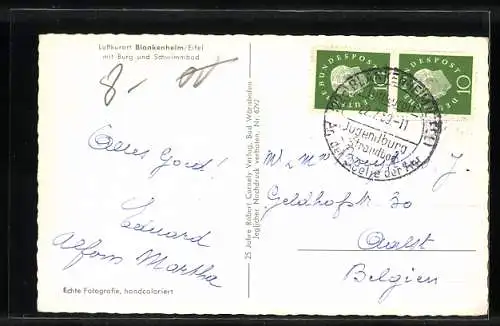 Luftkurort Blankenheim/Eifel
mit Burg und Schwimmbad
8.-
Alles Goed!
Eduard
Alfons Martha
Echte Fotografie, handcoloriert
25 Jahre Robert Cornely-Verlag, Bad Wörishofen
Jeglicher Nachdruck verboten. Nr. 4292
DEUTSCHE BUNDESPOST
10
DEUTSCHE BUNDESPOST
10
BLANKENHEIM
Jugendburg
Strandbad
An der Quelle der Ahr
Geldhofstr. 30
Aalst
Belgien